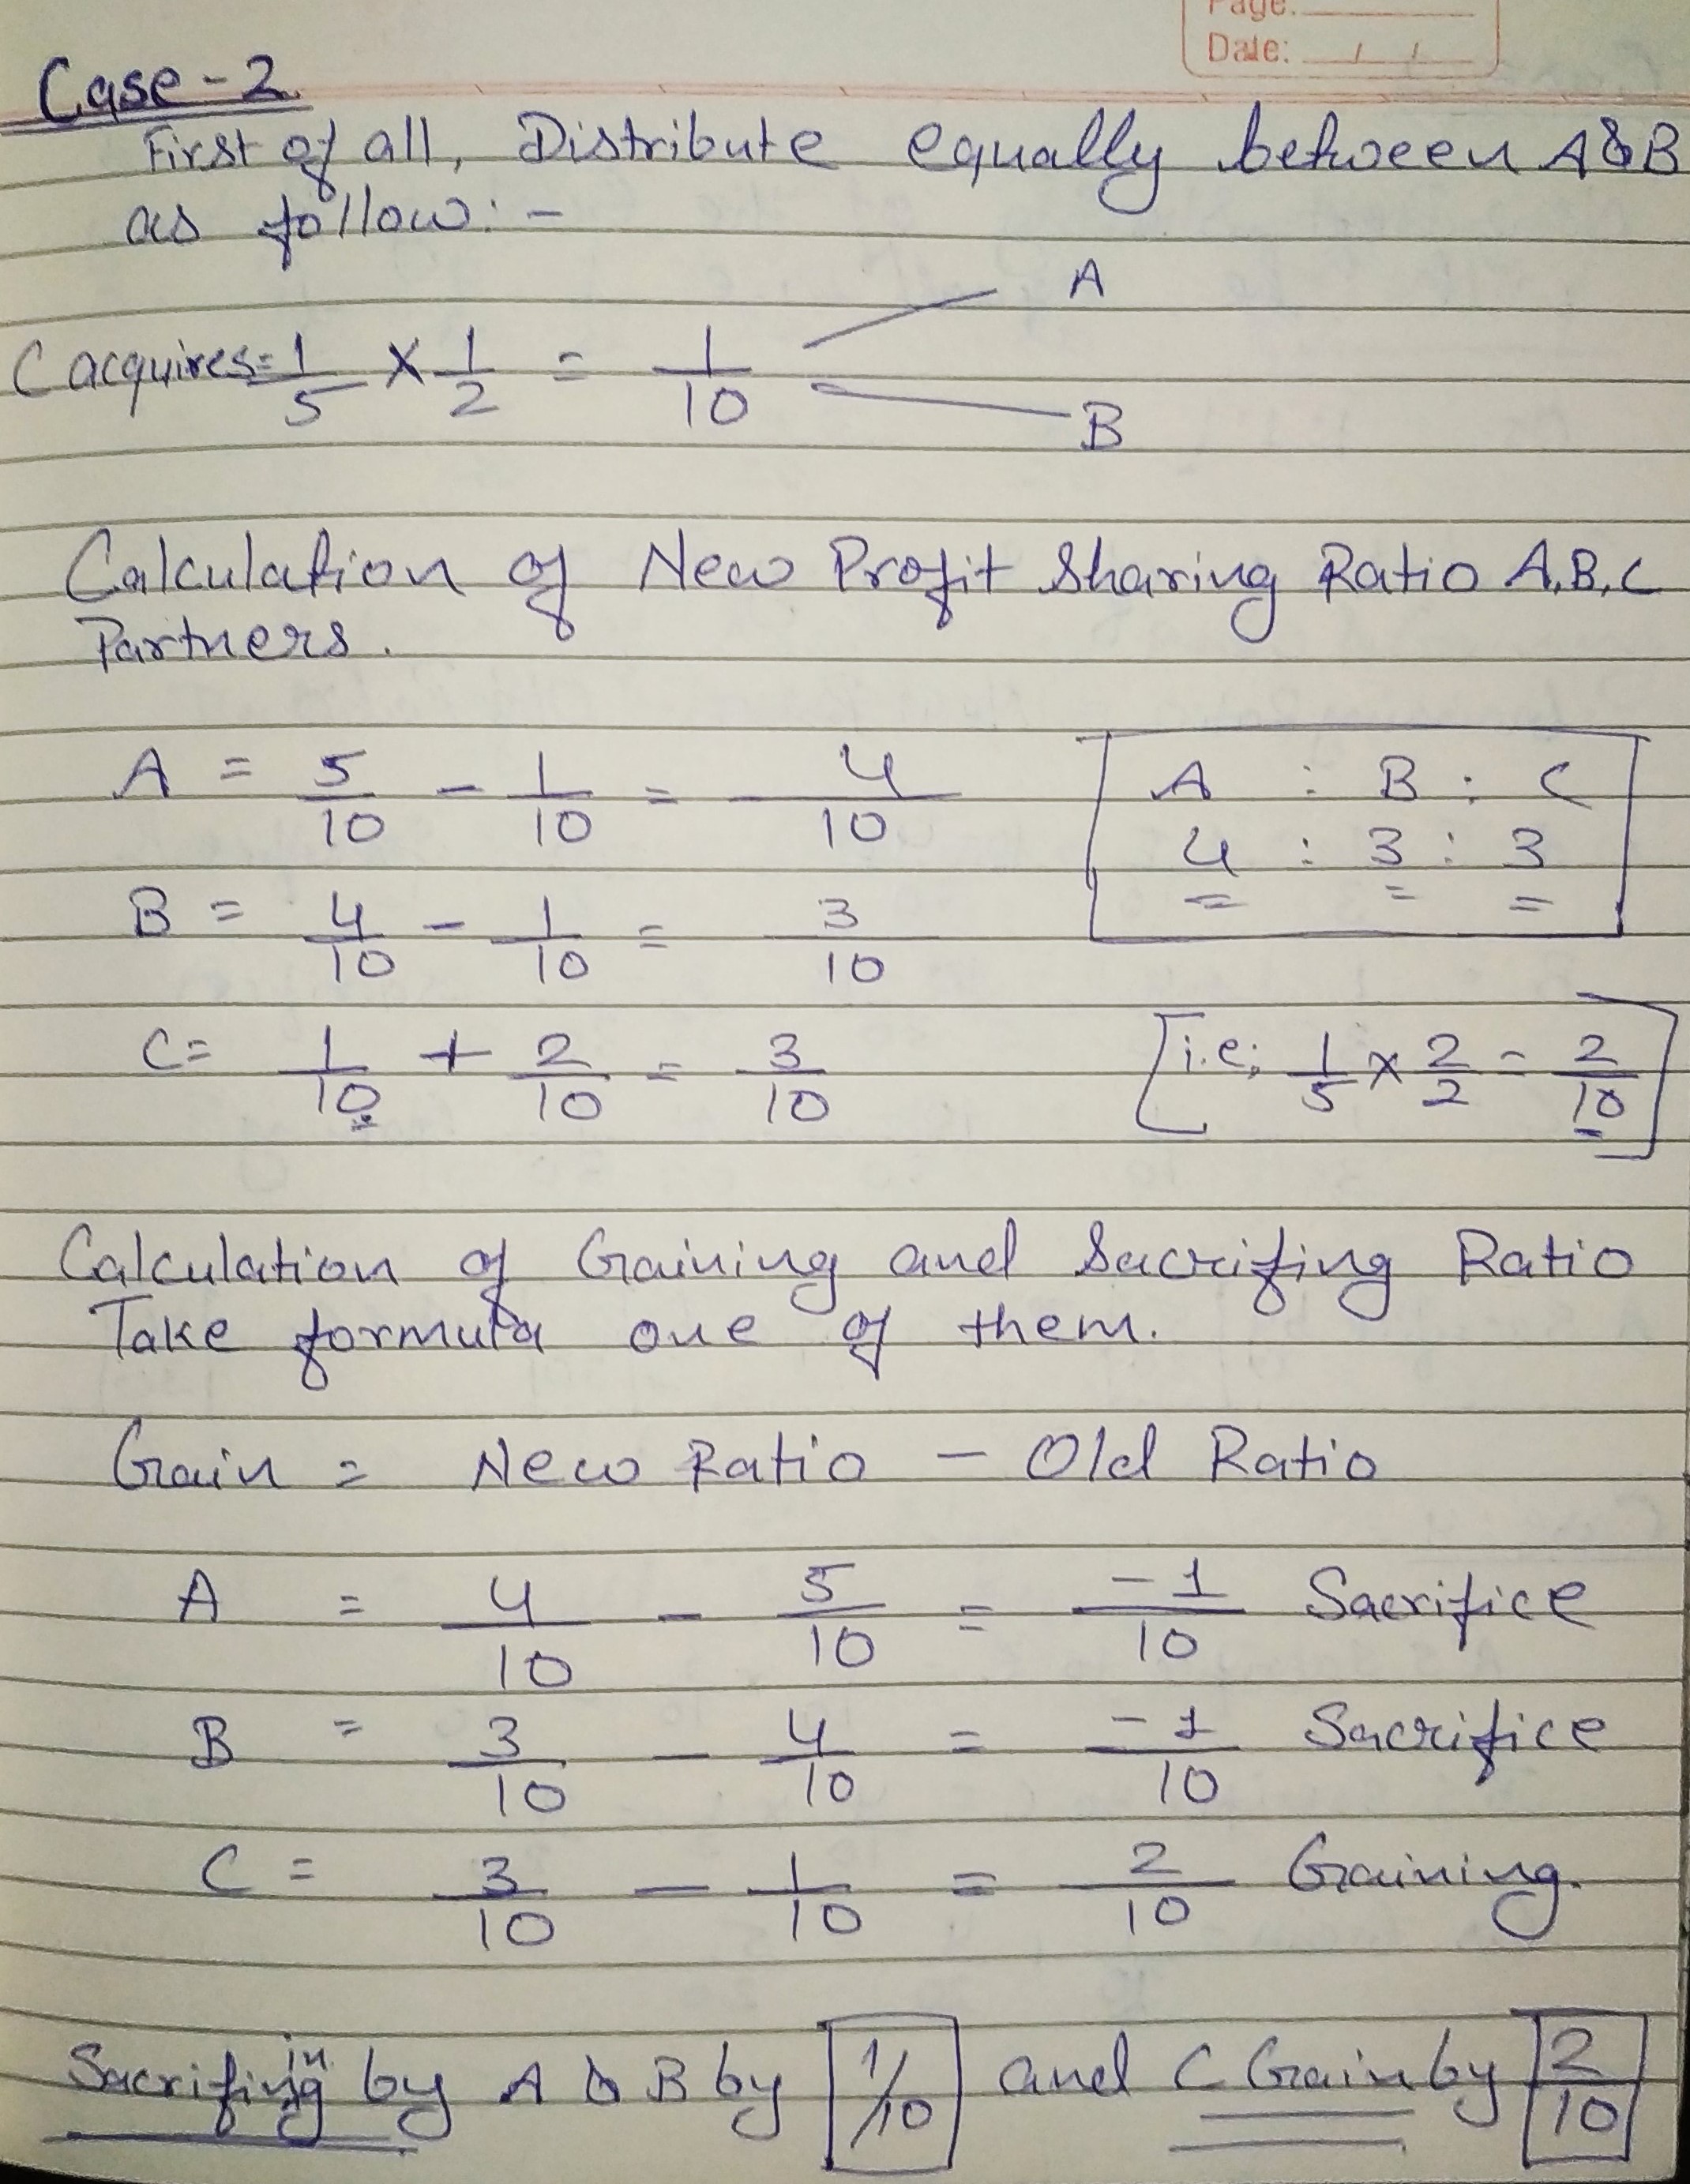 Page:
Date: / /
Case-2
First of all, Distribute equally between A & B
as follow:-
A
C acquires = 1/5 × 1/2 = 1/10
B
Calculation of New Profit Sharing Ratio A, B, C
Partners.
A = 5/10 - 1/10 = 4/10
A : B : C
4 : 3 : 3
B = 4/10 - 1/10 = 3/10
C = 1/10 + 2/10 = 3/10 [i.e; 1/5 × 2/2 = 2/10]
Calculation of Gaining and Sacrifing Ratio
Take formula one of them.
Gain = New Ratio - Old Ratio
A = 4/10 - 5/10 = -1/10 Sacrifice
B = 3/10 - 4/10 = -1/10 Sacrifice
C = 3/10 - 1/10 = 2/10 Gaining.
Sacrifing by A & B by 1/10 and C Gain by 2/10